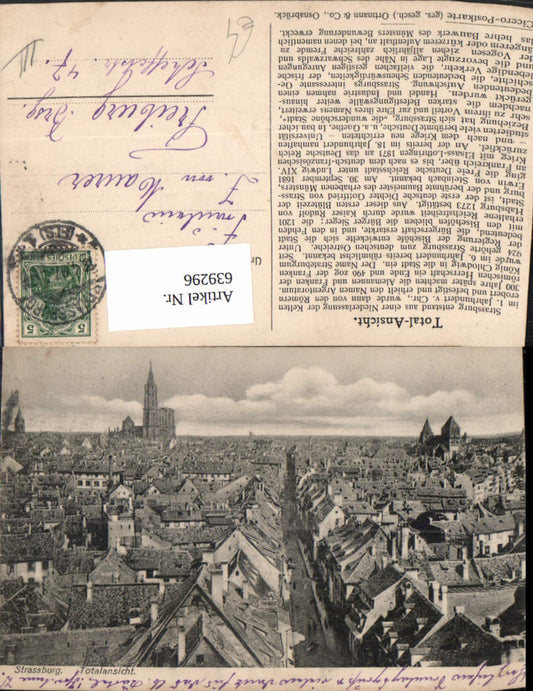 Total-Ansicht.
Strassburg entstand aus einer Niederlassung der Kelten
im 1. Jahrhundert v. Chr., wurde dann von den Römern
erobert und befestigt und erhielt den Namen Argentoratum.
300 Jahre später machten die Alemannen und Franken der
römischen Herrschaft ein Ende und 496 zog der Franken
König Chlodwig in die Stadt ein. Der Name Strateburgum
wurde im 6. Jahrhundert bereits urkundlich Seit
924 gehörte Strassburg zum deutschen Unter
der Regierung der Bischöfe entwickelte sich die Stadt
bedeutend, die Bürgerschaft erstarkte, und in den Fehden
mit den Bischöfen blieben die Bürger Sieger; die 1201
erhaltene Reichsfreiheit wurde durch Kaiser Rudolf von
Habsburg 1273 bestätigt. Aus dieser ersten Blütezeit der
Stadt, ist der erste Dichter Gottfried von Strass-
burg und der berühmte Baumeister des erhabenen Münsters,
Erwin von Steinbach bekannt. Am 30. September 1681
ging die Freie Deutsche Reichsstadt unter Ludwig XIV.
an Frankreich über, bis es nach dem deutsch-französischen
Krieg mit Elsass-Lothringen 1871 an das Deutsche Reich
zurückfiel. An der bereits im 18. Jahrhundert namhaften
– und nach dem Kriege neu errichteten – Universität
studierten viele berühmte Deutsche, u. a. Goethe. In baulicher
Beziehung hat sich Strassburg, „die wunderschöne Stadt“,
sehr zu ihrem Vorteil und zur Ehre ihres Namens erweitert,
nachdem die starken Befestigungswälle weiter hinaus-
gerückt wurden. Handel und Industrie nahmen einen
bedeutenden Aufschwung. Strassburgs interessante Ge-
schichte, die bedeutenden Sehenswürdigkeiten, der frische
lebendige Verkehr, die vielfachen geistigen Anregungen
und die bevorzugte Lage in Nähe des Schwarzwalds und
der Vogesen ziehen alljährlich zahlreiche Fremde zu
längerem oder kürzerem Aufenthalt an, bei denen namentlich
das hehre Bauwerk des Münsters Bewunderung erweckt.
Cicero-Postkarte (ges. gesch.) Ortmann & Co., Osnabrück.
DEUTSCHES REICH
5 5
Artikel Nr.
639296
von Maurer
Freiburg Brsg.
47.
III
Strassburg. Totalansicht.